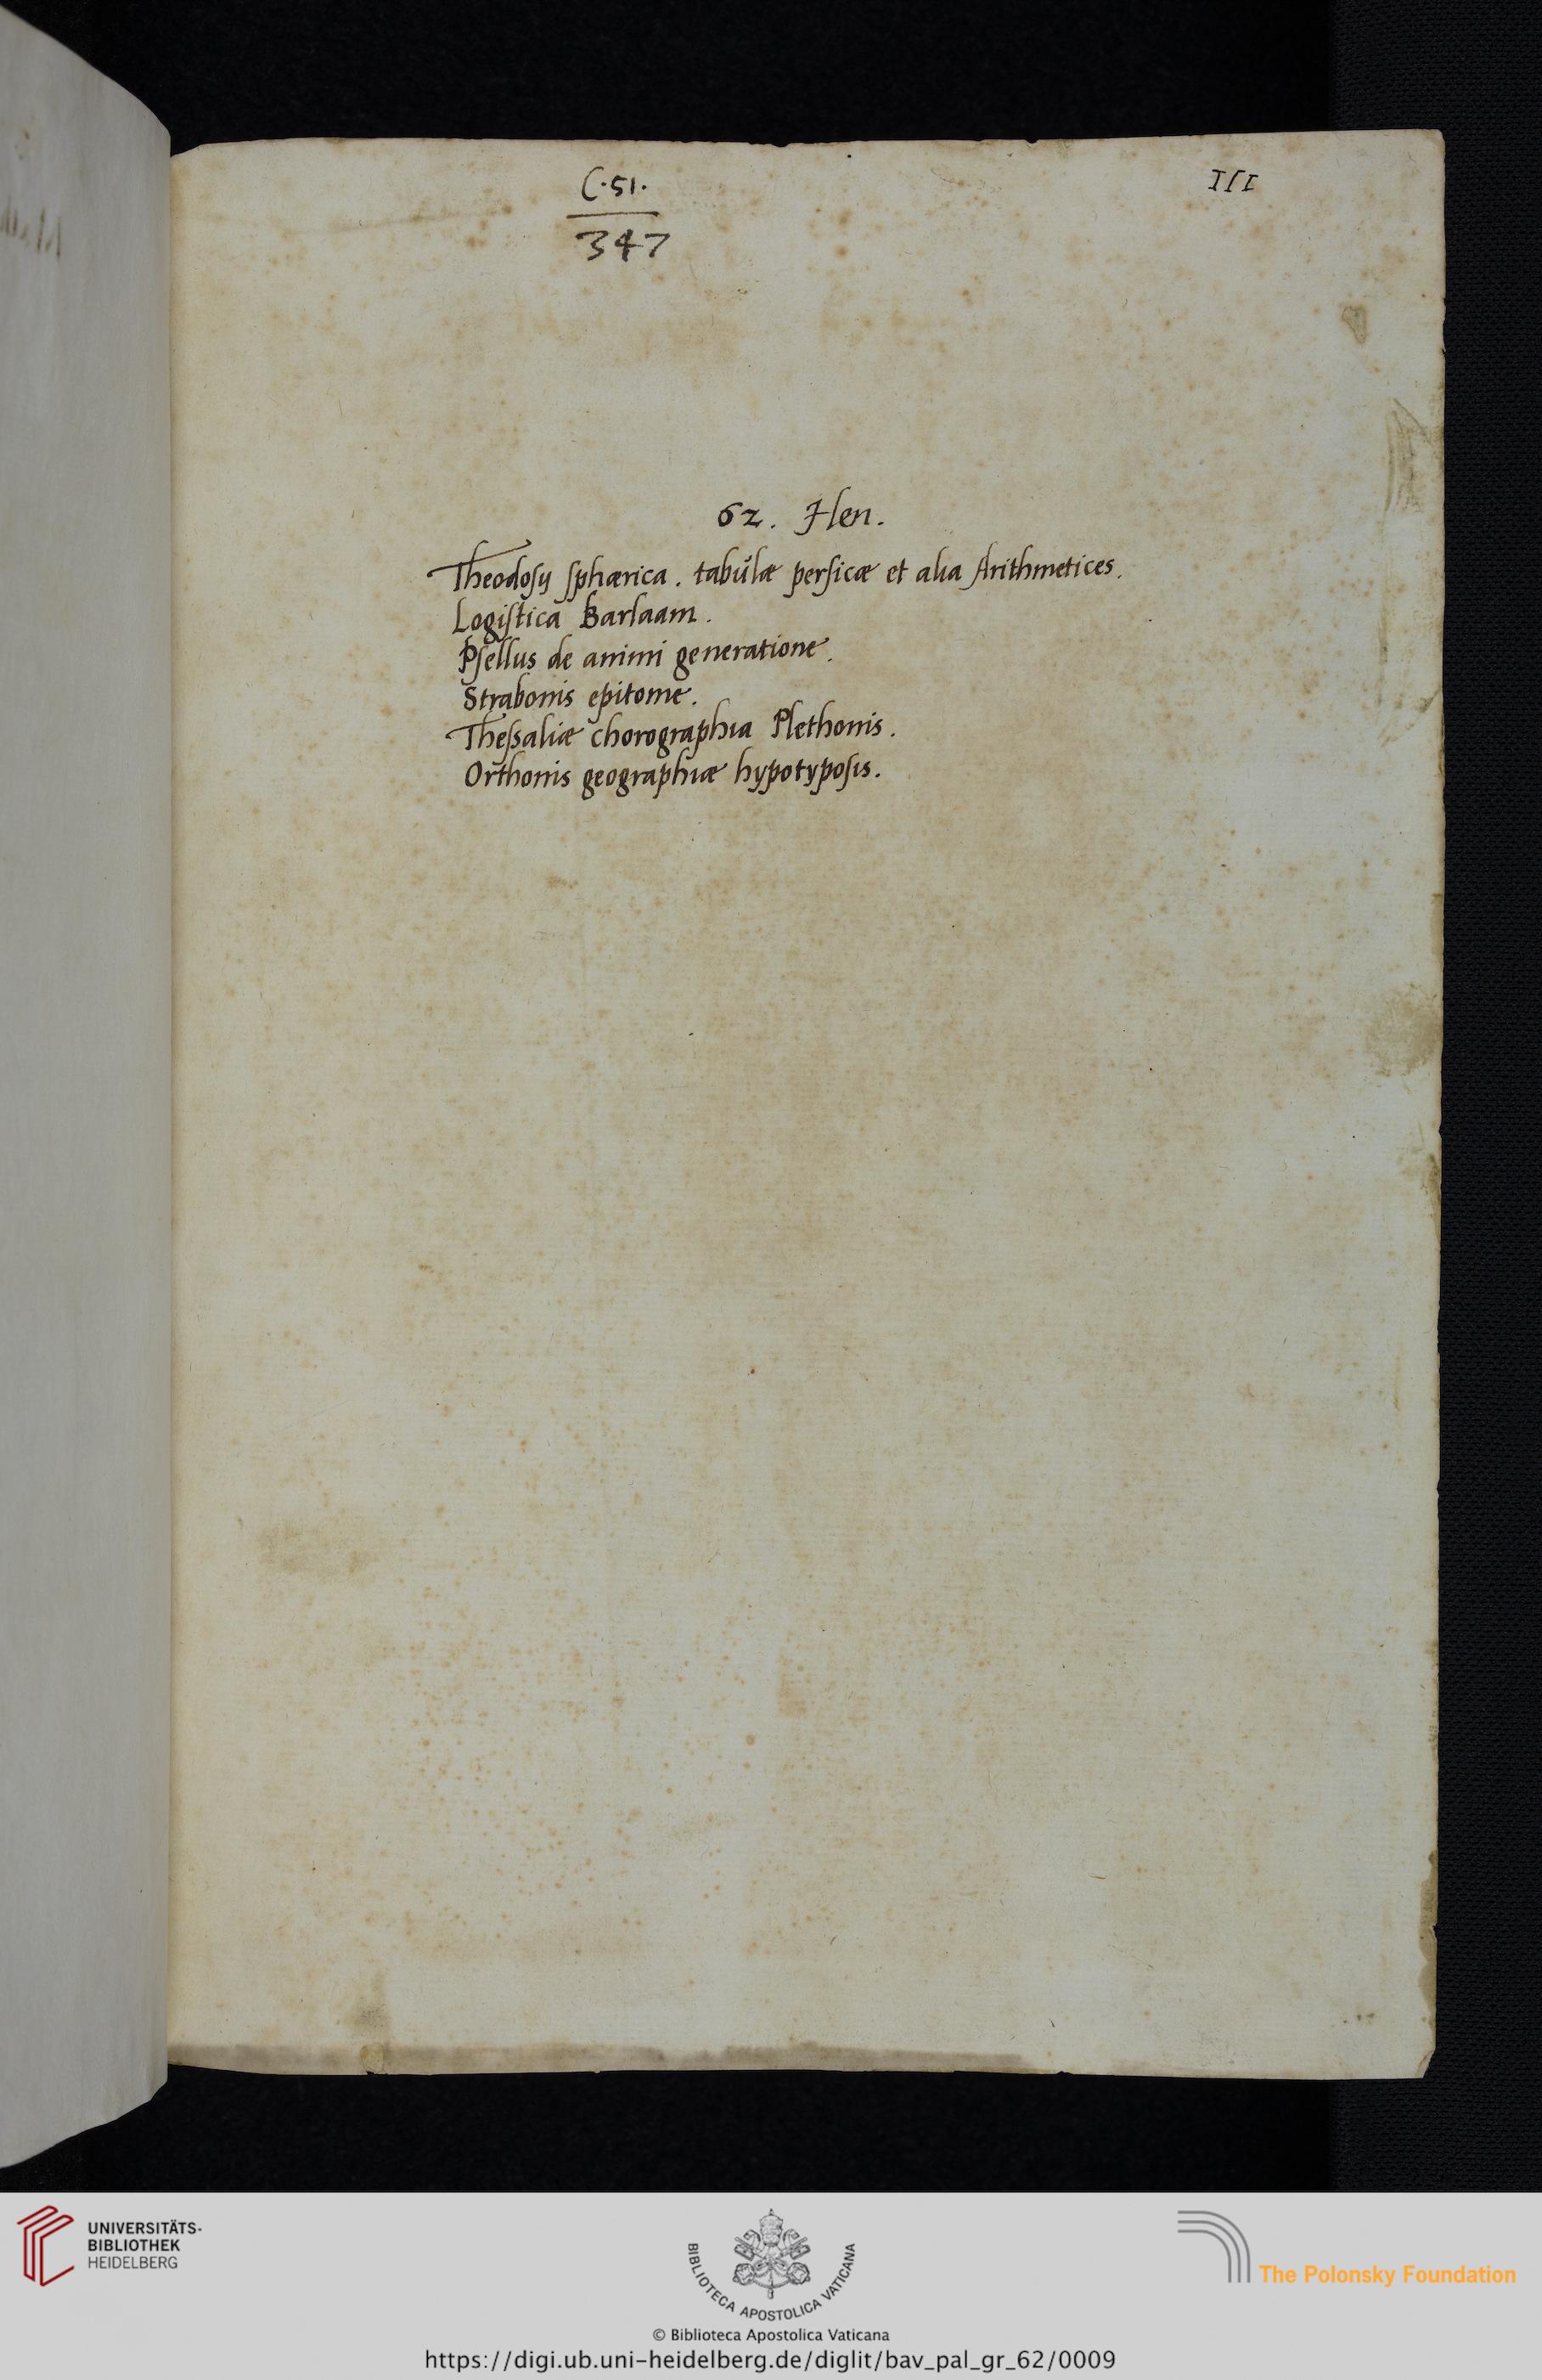 C·51.
347
III
62. Hen.
Theodosij sphærica. tabulæ persicæ et alia Arithmetices.
Logistica Barlaam.
Psellus de animi generatione.
Strabonis epitome.
Thessaliæ chorographia Plethonis.
Orthonis geographiæ hypotyposis.
UNIVERSITÄTS-
BIBLIOTHEK
HEIDELBERG
BIBLIOTECA APOSTOLICA VATICANA
The Polonsky Foundation
© Biblioteca Apostolica Vaticana
https://digi.ub.uni-heidelberg.de/diglit/bav_pal_gr_62/0009